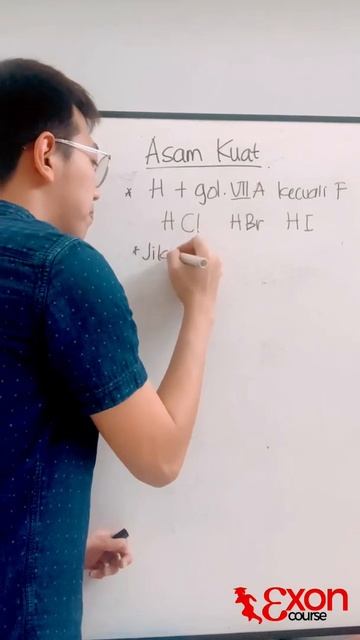 Asam Kuat
* H + gol. VII A kecuali F
HCl HBr HI
* Jik
Exon
course